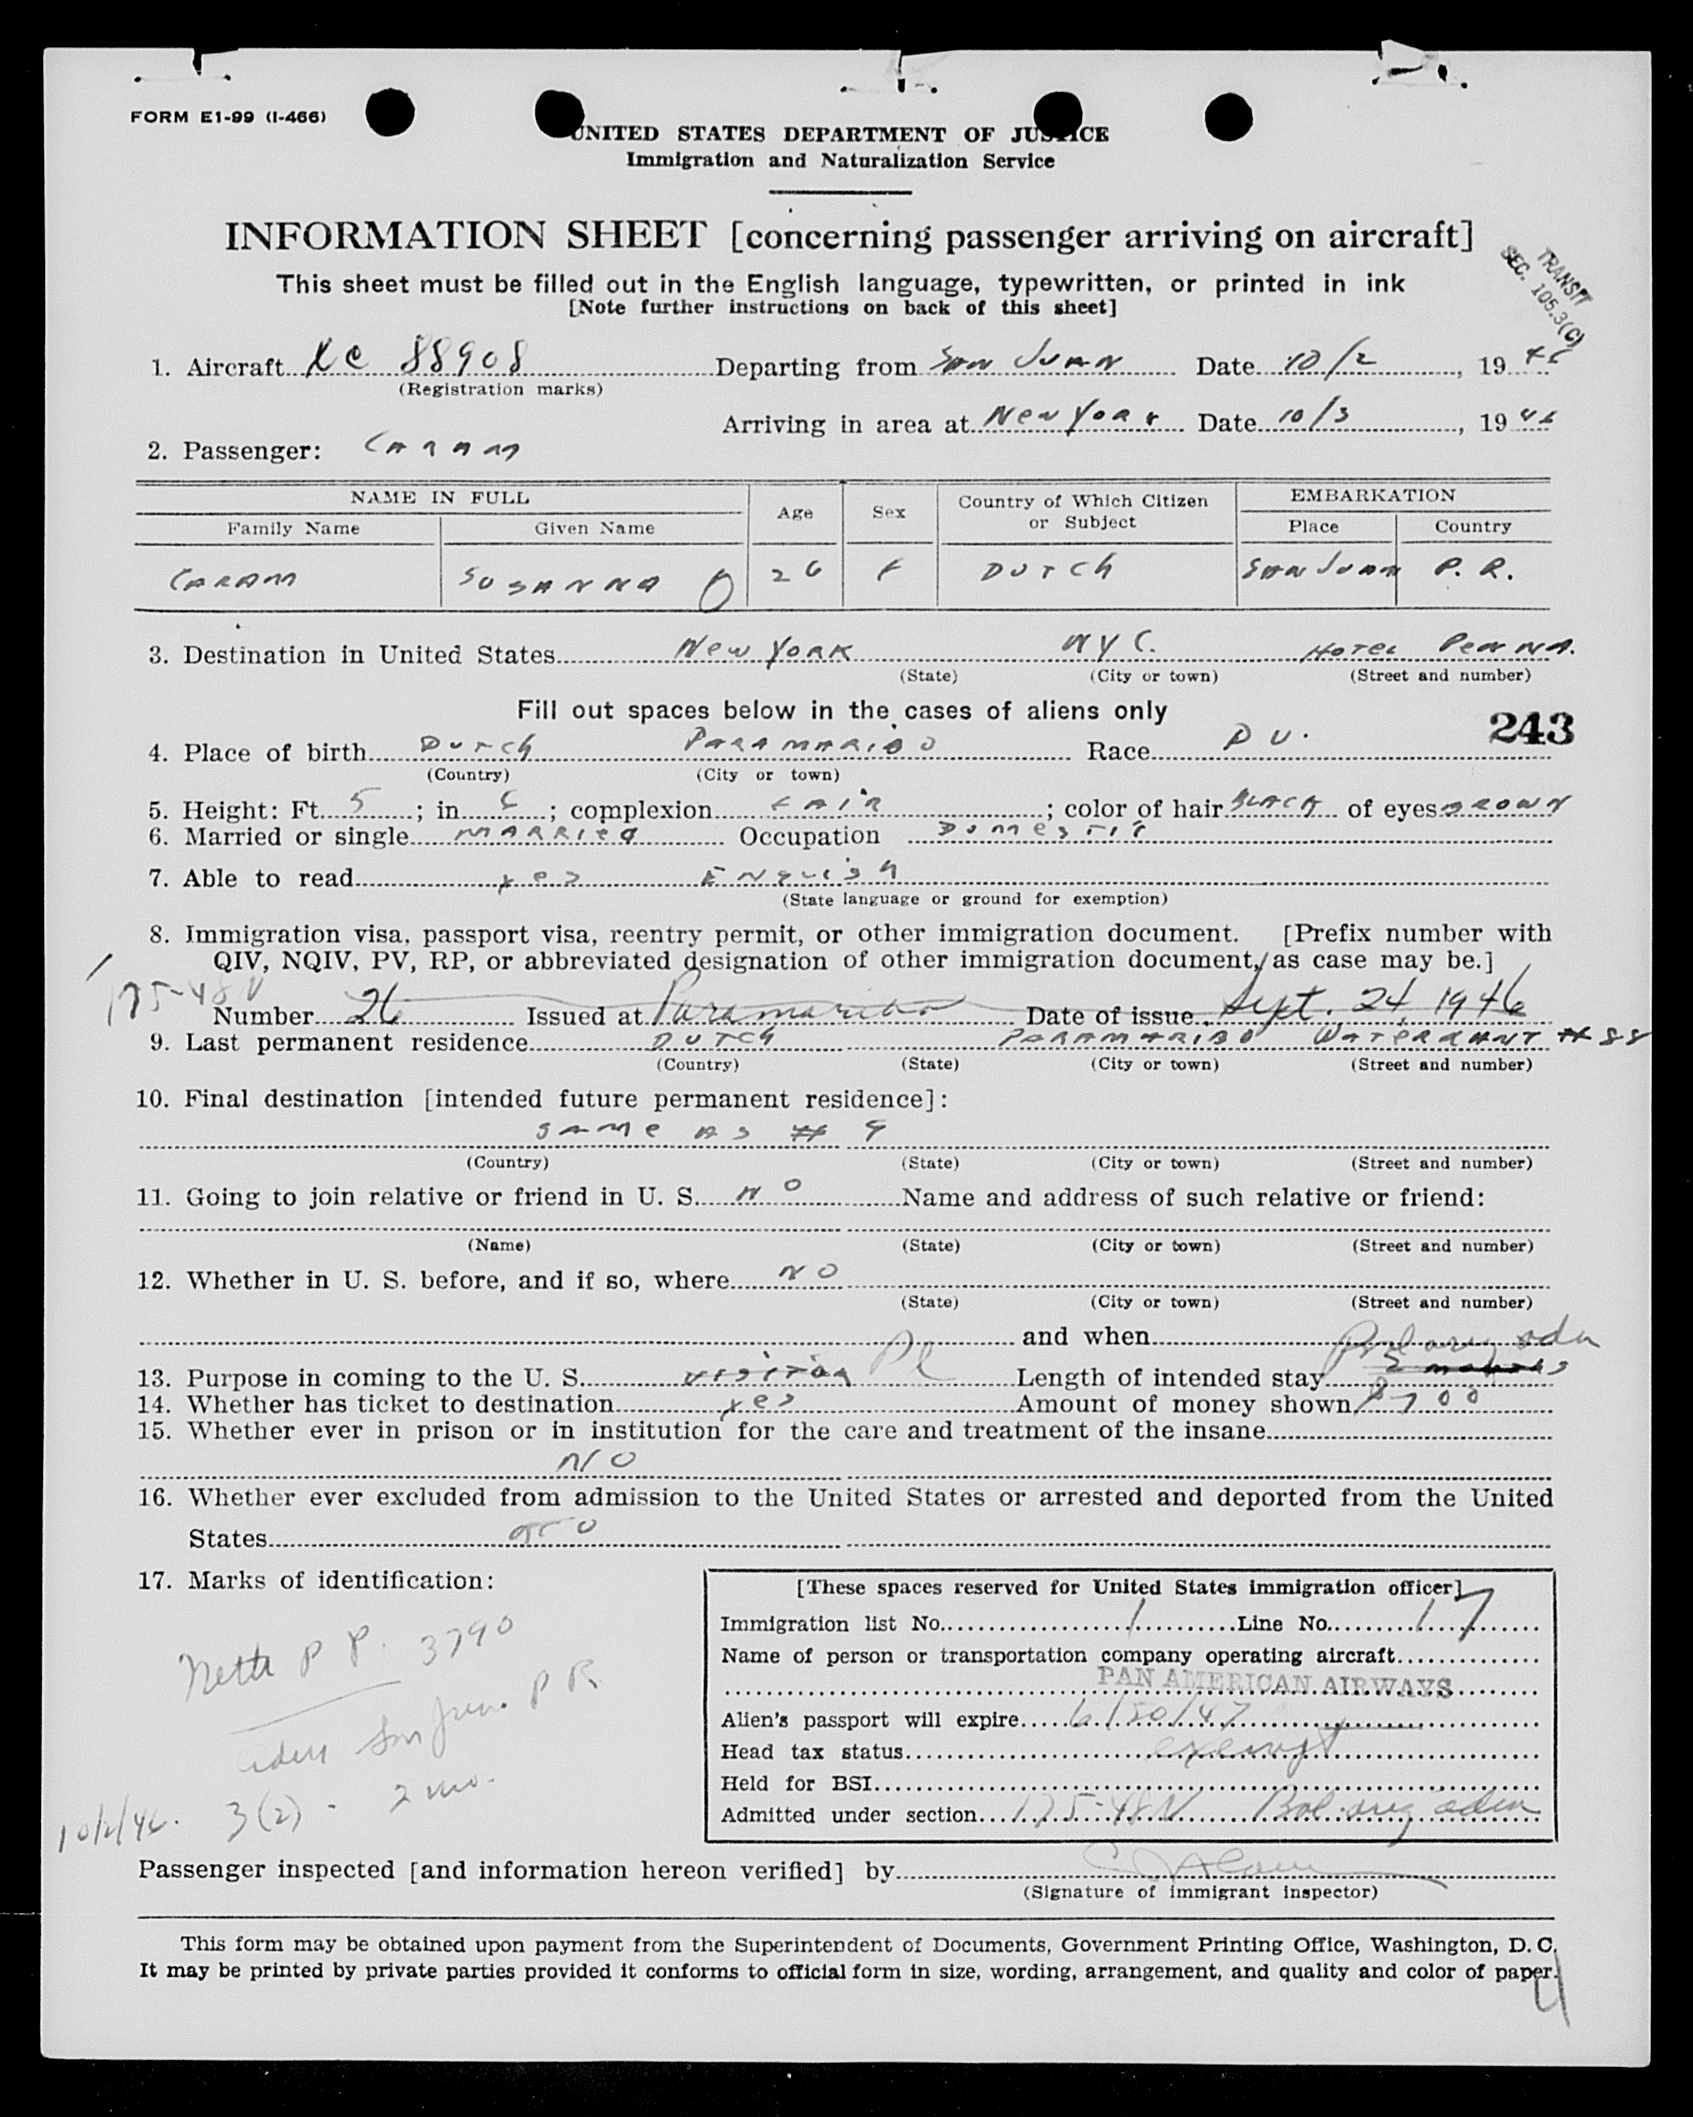 FORM E1-99 (I-466)
UNITED STATES DEPARTMENT OF JUSTICE
Immigration and Naturalization Service
INFORMATION SHEET [concerning passenger arriving on aircraft]
This sheet must be filled out in the English language, typewritten, or printed in ink
[Note further instructions on back of this sheet]
TRANSIT
SEC. 105.3(C)
1. Aircraft NC 88908 Departing from SAN JUAN Date 10/2, 1946
(Registration marks)
Arriving in area at New York Date 10/3, 1946
2. Passenger: CARAM
NAME IN FULL Age Sex Country of Which Citizen or Subject EMBARKATION
Family Name Given Name Place Country
CARAM SUSANNA O 26 F DUTCH SAN JUAN P. R.
3. Destination in United States New YORK NYC. HOTEL PENNA.
(State) (City or town) (Street and number)
Fill out spaces below in the cases of aliens only
243
4. Place of birth DUTCH PARAMARIBO Race DU.
(Country) (City or town)
5. Height: Ft. 5; in. 6; complexion FAIR; color of hair BLACK of eyes BROWN
6. Married or single MARRIED Occupation DOMESTIC
7. Able to read yes ENGLISH
(State language or ground for exemption)
8. Immigration visa, passport visa, reentry permit, or other immigration document. [Prefix number with
QIV, NQIV, PV, RP, or abbreviated designation of other immigration document, as case may be.]
175-48 V
Number 26 Issued at Paramaribo Date of issue Sept. 24, 1946
9. Last permanent residence DUTCH PARAMARIBO WATERKANT # 88
(Country) (State) (City or town) (Street and number)
10. Final destination [intended future permanent residence]:
SAME AS # 9
(Country) (State) (City or town) (Street and number)
11. Going to join relative or friend in U. S. NO Name and address of such relative or friend:
(Name) (State) (City or town) (Street and number)
12. Whether in U. S. before, and if so, where NO
(State) (City or town) (Street and number)
and when
Bal orig adm
13. Purpose in coming to the U. S. Pl Length of intended stay 2 months
14. Whether has ticket to destination yes Amount of money shown $700
15. Whether ever in prison or in institution for the care and treatment of the insane
NO
16. Whether ever excluded from admission to the United States or arrested and deported from the United
States NO
17. Marks of identification:
Neth P P. 3790
adm San Juan P R
10/2/46. 3(2) - 2 mo.
[These spaces reserved for United States immigration officer]
Immigration list No. 1 Line No. 17
Name of person or transportation company operating aircraft
PAN AMERICAN AIRWAYS
Alien's passport will expire 6/20/47
Head tax status exempt
Held for BSI
Admitted under section 175-48 V Bal. orig adm
Passenger inspected [and information hereon verified] by
(Signature of immigrant inspector)
This form may be obtained upon payment from the Superintendent of Documents, Government Printing Office, Washington, D. C.
It may be printed by private parties provided it conforms to official form in size, wording, arrangement, and quality and color of paper.
4